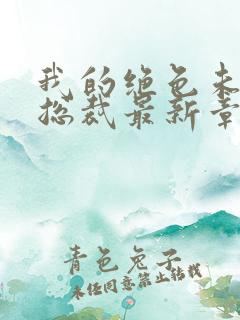 我的绝色未
总裁最新章
青色兔子
未经同意禁止转载